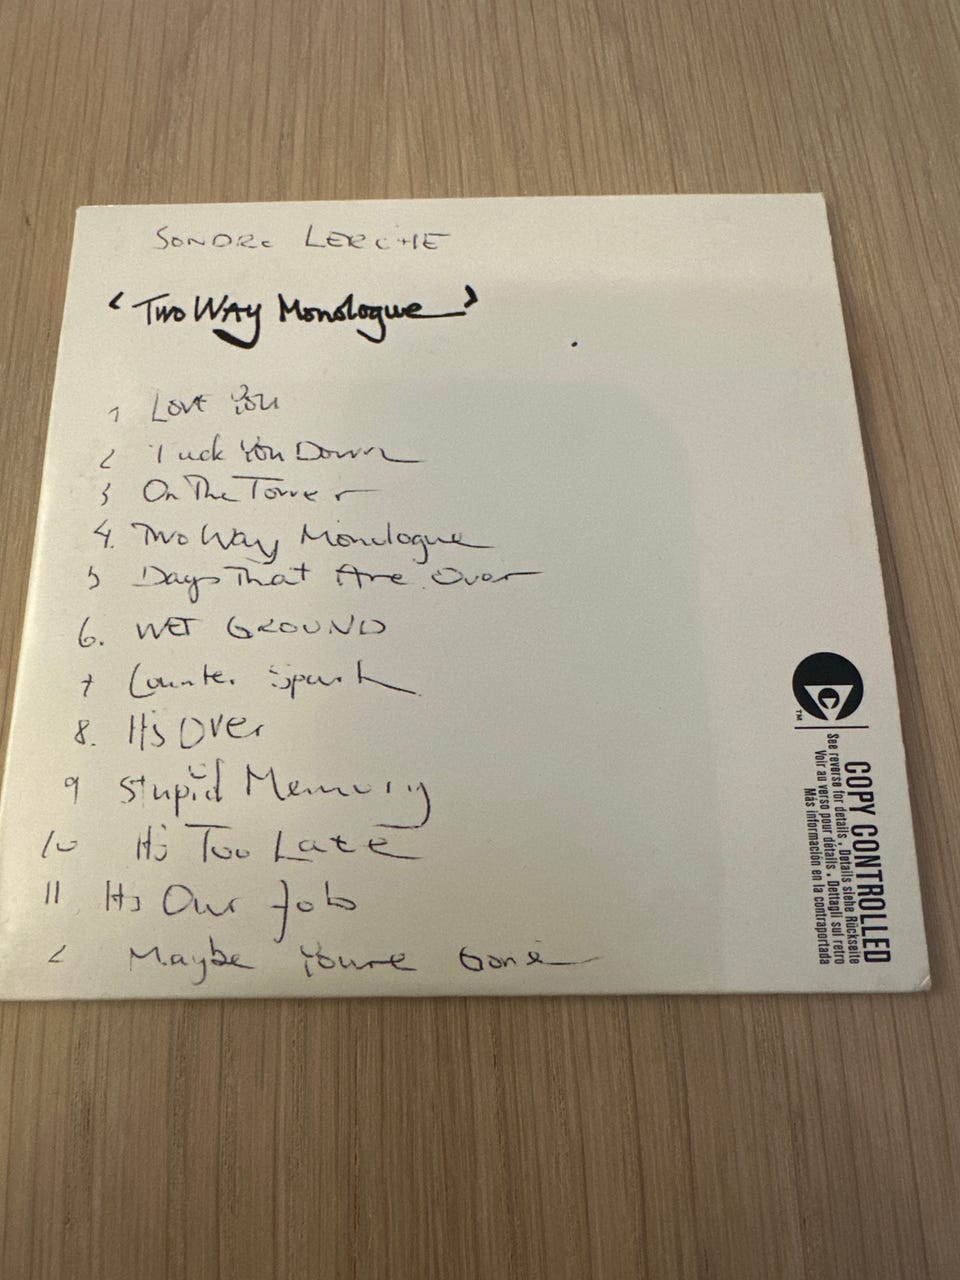 SONDRE LERCHE
‘Two WAY Monologue’
1 LOVE YOU
2 Tuck You Down
3 On The Tower
4. Two Way Monologue
5 Days That Are Over
6. WET GROUND
7 Counter Spark
8. It's Over
9 Stupid Memory
10 It's Too Late
11 It's Our Job
2 Maybe You're Gone
C
TM
COPY CONTROLLED
See reverse for details . Details siehe Rückseite
Voir au verso pour détails . Dettagli sul retro
Más información en la contraportada